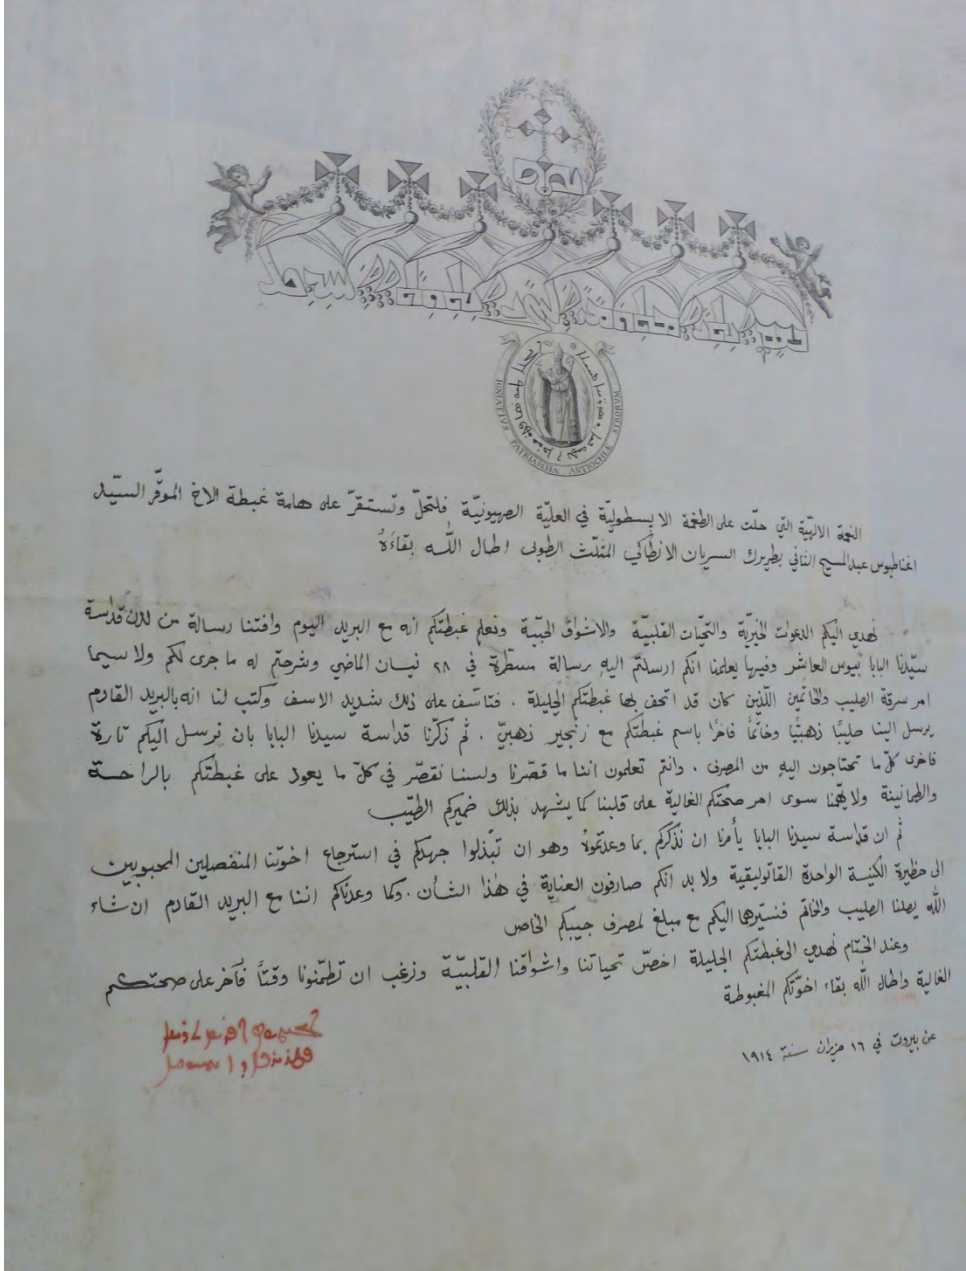 IGNATIUS PATRIARCHA ANTIOCHIÆ
النعمة الالهيّة التي حلّت على الطغمة الابسطوليّة في العليّة الصهيونيّة فلتحلّ وتستقرّ على هامة غبطة الاخ الموقّر السيّد
اغناطيوس عبد المسيح الثاني بطريرك السريان الانطاكي المثلّث الطوبى اطال اللّٰه بقاءَهُ
نهدي اليكم الدعوات الخيريّة والتحيّات القلبيّة والاشواق الحبيّة ونعلم غبطتكم انه مع البريد اليوم وافتنا رسالة من لدن قداسة
سيّدنا البابا بيوس العاشر وفيها يعلمنا انكم ارسلتم اليهِ رسالة مسطّرة في ٢٨ نيسان الماضي وشرحتم له ما جرى لكم ولا سيما
امر سرقة الصليب والخاتمين اللّذين كان قد اتحف بها غبطتكم الجليلة . فتاسّف على ذلك شديد الاسف وكتب لنا انه بالبريد القادم
يرسل الينا صليبًا ذهبيًّا وخاتمًا فاخرًا باسم غبطتكم مع زنجير ذهبيّ . ثم ذكّرنا قداسة سيدنا البابا بان نرسل اليكم تارة
فاخرى كلّ ما تحتاجون اليهِ من المصرف . وانتم تعلمون اننا ما قصّرنا ولسنا نقصّر في كلّ ما يعود على غبطتكم بالراحة
والطمانينة ولا يهمّنا سوى امر صحّتكم الغالية على قلبنا كما يشهد بذلك ضميركم الطيّب
ثم ان قداسة سيدنا البابا يأمرنا ان نذكركم بما وعدتموهُ وهو ان تبذلوا جهدكم في استرجاع اخوتنا المنفصلين المحبوبين
الى حظيرة الكنيسة الواحدة القاثوليقية ولا بد انكم صارفون العناية في هٰذا الشأن . وكما وعدناكم اننا مع البريد القادم ان شاء
اللّٰه يصلنا الصليب والخاتم فنسيّرها اليكم مع مبلغ لمصرف جيبكم الخاص
وعند الختام نهدي الى غبطتكم الجليلة اخصّ تحياتنا واشواقنا القلبيّة ونرغب ان تطمّنونا وقتًا فآخر على صحتكم
الغالية واطال اللّٰه بقاء اخوّتكم المغبوطة
عن بيروت في ١٦ حزيران سنة ١٩١٤